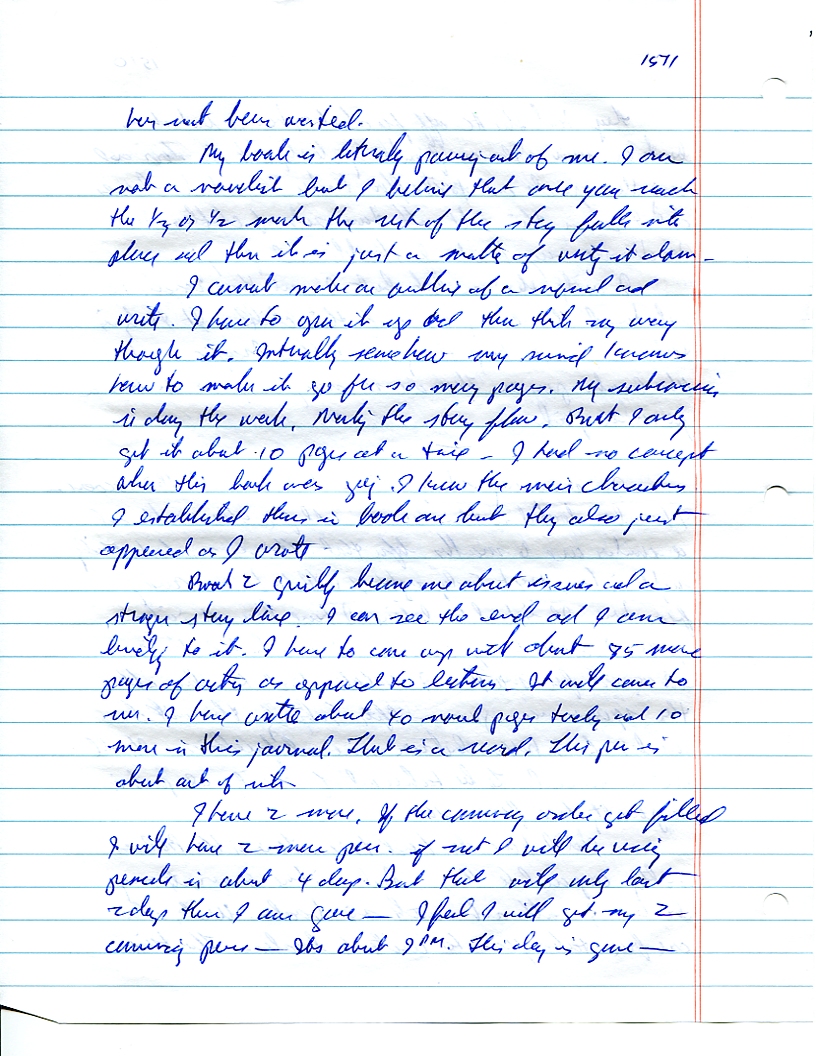 1571
has not been wasted.
My book is literally pouring out of me. I am
not a novelist but I believe that once you reach
the 1/3 or 1/2 mark the rest of the story falls into
place and then it is just a matter of writing it down -
I cannot make an outline of a novel and
write. I have to open it up and then think my way
through it. somehow my mind knows
how to make it go for so many pages. My subconscious
is doing the work, making the story flow. But I only
get it about 10 pages at a time - I had no concept
where this book was going. I knew the main characters
I established them in book one but they also just
appeared as I wrote -
Book 2 quickly became one about issues and a
stronger story line. I can see the end and I am
to it. I have to come up with about 75 more
pages of writing as opposed to letters - It will come to
me. I have written about 40 novel pages today and 10
more in this journal. That is a record. This pen is
about out of ink -
I have 2 more. If the commissary order gets filled
I will have 2 more pens. if not I will be using
pencils in about 4 days. But that will only last
2 days then I am gone — I feel I will get my 2
commissary pens — Its about 9 PM. This day is gone —